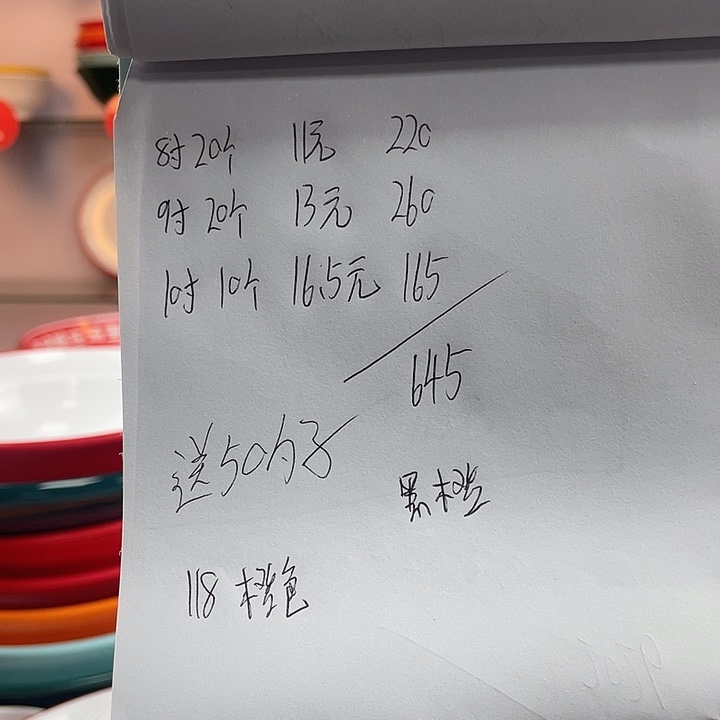 8寸20个 11元 220
9寸 20个 13元 260
10寸 10个 16.5元 165
645
送50勺子
黑橙
118 橙色